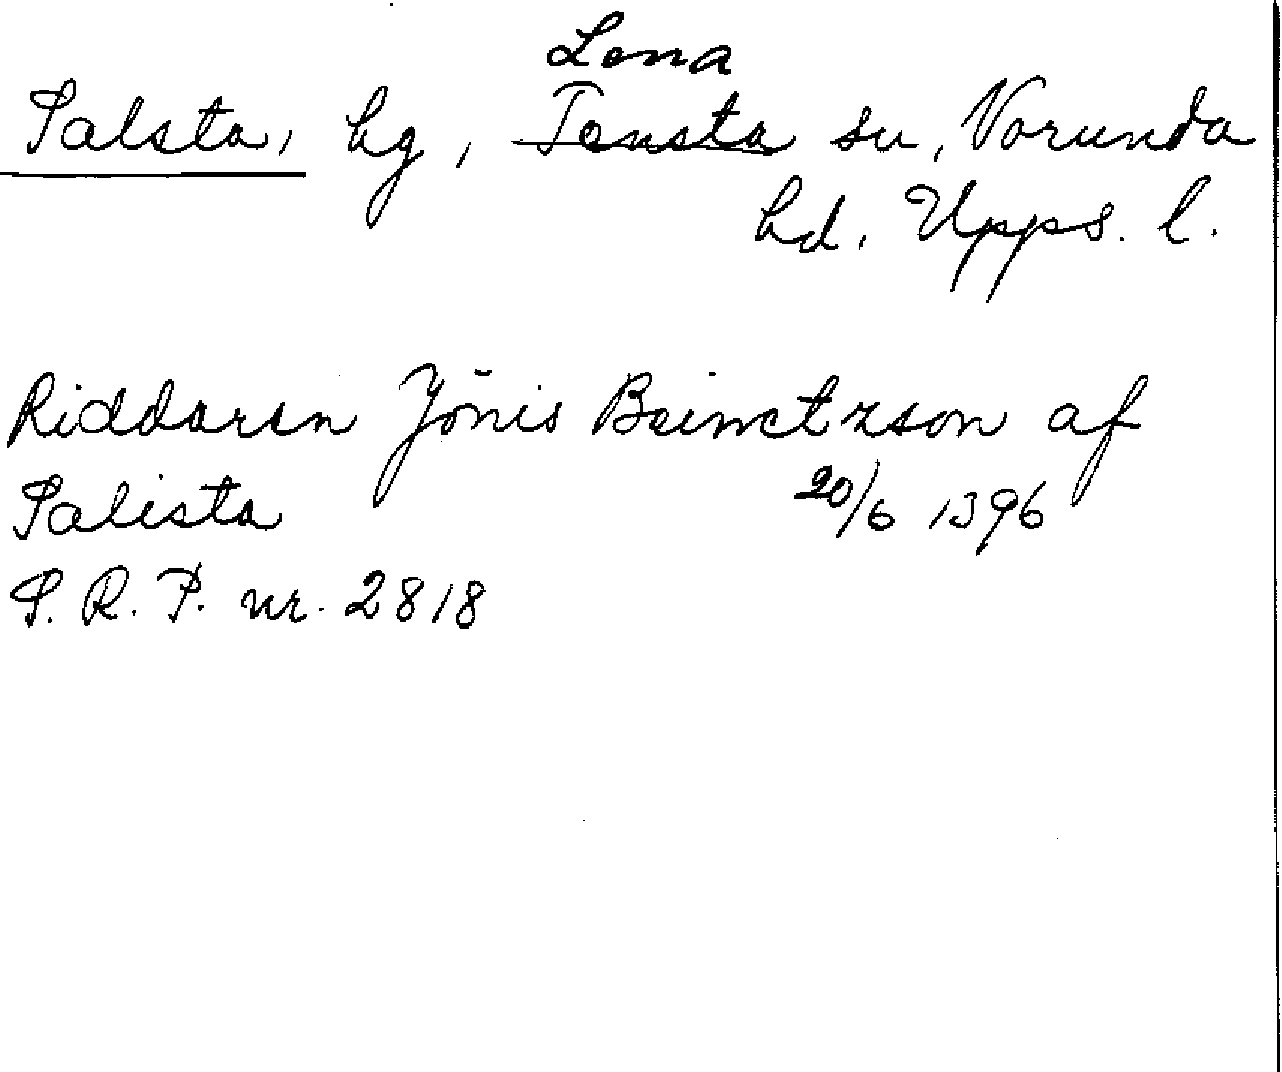 Lena
Salsta, hg, Tensta sn, Norunda
hd. Upps. l.
Riddaren Jönis Beinctzson af
Salista 20/6 1396
S. R. P. nr. 2818